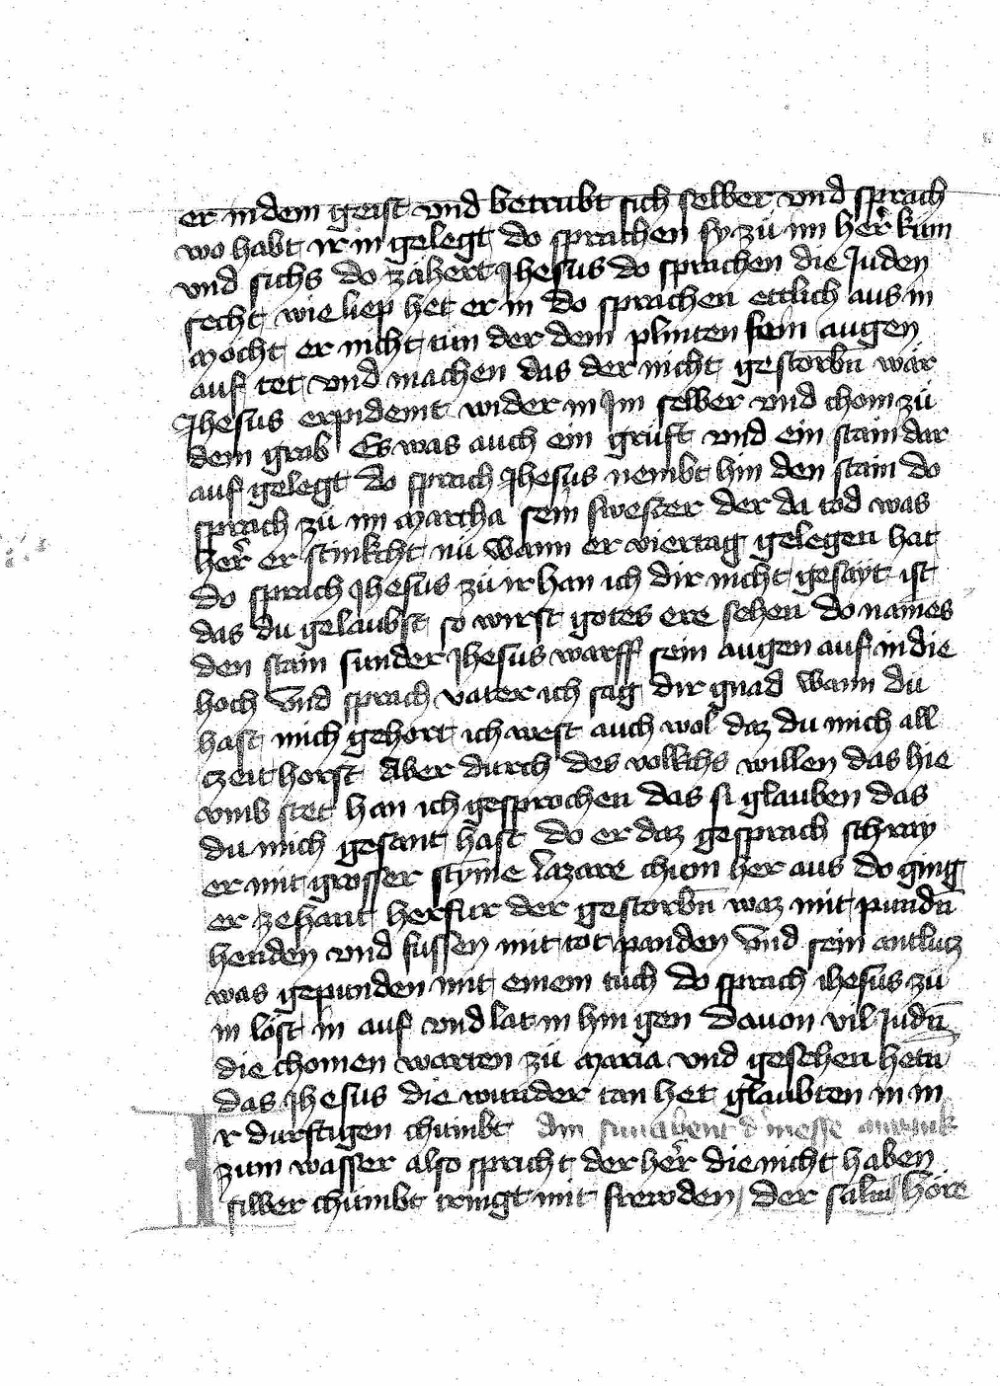 er in dem geist vnd betrubt sich selber vnd sprach
wo habt ir in gelegt do sprachen sy zu im her kum
vnd sichs do zähert Jhesus do sprachen die Juden
secht wie liep het er in do sprachen ettlich aus in
mocht er nicht tun der dem plinten sein augen
auf tet vnd machen das der nicht gestorbn̄ wär
Jhesus erpidemt wider in Im selber vnd chom zů
dem grab Es was auch ein gruft vnd ein stain dar
auf gelegt do sprach Jhesus nembt hin den stain do
sprach zů im Martha sein swester der da tod was
her er stinkcht nů wann er viertag gelegen hat
do sprach Jhesus zů ir han ich dir nicht gesayt ist
das du gelaubst so wirst gotes ere sehen do namen
den stain sunder Jhesus warff sein augen auf in die
hoch vnd sprach vater ich sag dir gnad wann du
hast mich gehort ich west auch wol daz du mich all
czeit horst Aber durch des volkchs willen das hie
vmb stet han ich gesprochen das si glauben das
du mich gesant hast do er daz gesprach schray
er mit grosser stÿme Lazare chum her aus do ging
er zehant herfur der gestorbn̄ waz mit pundn̄
henden vnd fussen mit tot panden vnd sein antlucz
was gepunden mit einem tuch do sprach ihesus zů
in löst in auf vnd lat in hin gen Dauon vil Judn̄
die chomen warren zů maria vnd gesehen hetn̄
das Jhesus die wunder tan het glaubten in in
Ir durstigen chumbt Am sunabent d' messe
zum wasser also spricht der her die nicht haben
silber chumbt tringt mit frewden der salm Höre